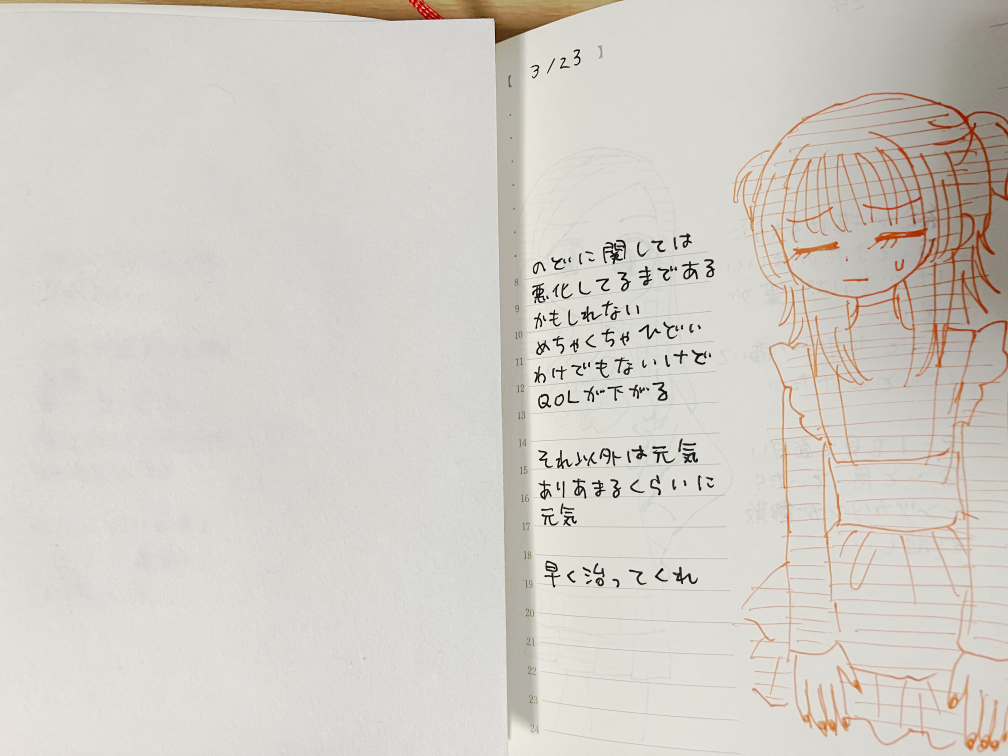 【 3/23 】
のどに関しては
8
悪化してるまである
9
かもしれない
10
めちゃくちゃひどい
11
わけでもないけど
12
QOLが下がる
13
14
それ以外は元気
15
ありあまるくらいに
16
元気
17
18
早く治ってくれ
19
20
21
22
23
24